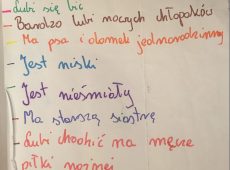 - Lubi się bić
- Bardzo lubi mocnych chłopaków
- Ma psa i domek jednorodzinny
- Jest niski
- Jest nieśmiały
- Ma starszą siostrę
- Lubi chodzić na mecze
piłki nożnej